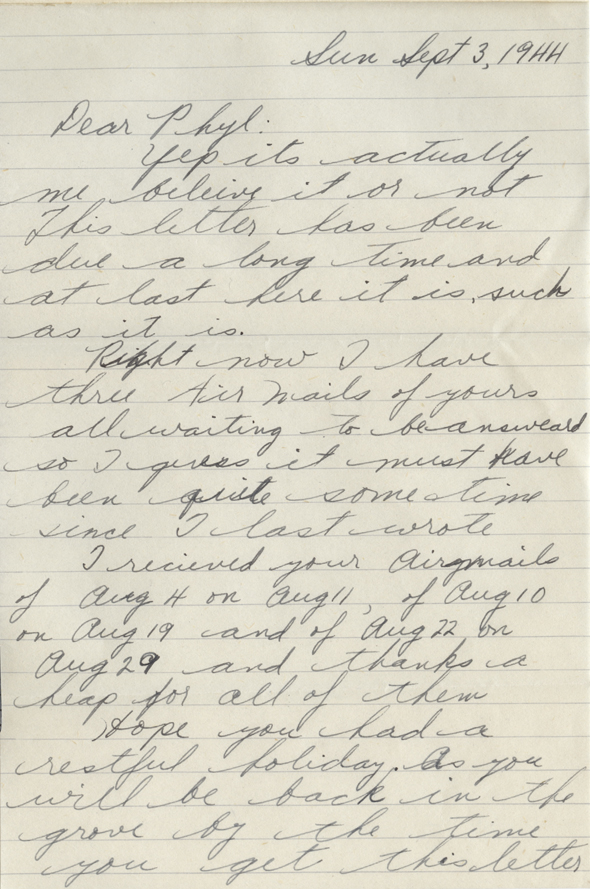 Sun Sept 3, 1944
Dear Phyl:
Yep its actually
me beleive it or not
This letter has been
due a long time and
at last here it is, such
as it is.
Right now I have
three Air Mails of yours
all waiting to be answeard
so I guess it must have
been quite some time
since I last wrote
I recieved your Airgmails
of Aug 4 on Aug 11, of Aug 10
on Aug 19 and of Aug 22 on
Aug 29 and thanks a
heap for all of them
Hope you had a
restful holiday. As you
will be back in the
grove by the time
you get this letter